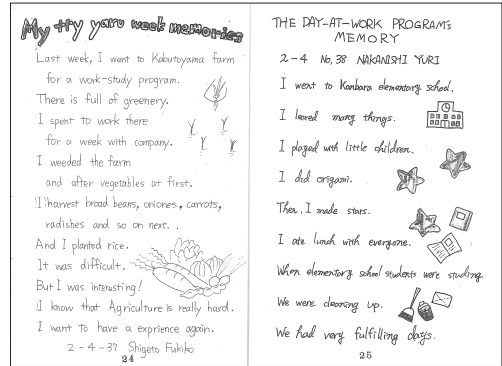 My try yaru week memories
Last week, I went to Kabutoyama farm
for a work-study program.
There is full of greenery.
I spent to work there
for a week with company.
I weeded the farm
and after vegetables at first.
I harvest broad beans, oniones, carrots,
radishes and so on next.
And I planted rice.
It was difficult.
But I was interesting!
I know that Agriculture is really hard.
I want to have a exprience again.
2-4-37 Shigeto Fukiko
24
THE DAY-AT-WORK PROGRAM's
MEMORY
2-4 No,38 NAKANISHI YURI
I went to Kanbara elementary school.
I leared many things.
I played with little children.
I did origami.
Then, I made stars.
I ate lunch with everyone.
When elementary school students were studing.
We were cleaning up.
We had very fulfilling days.
25